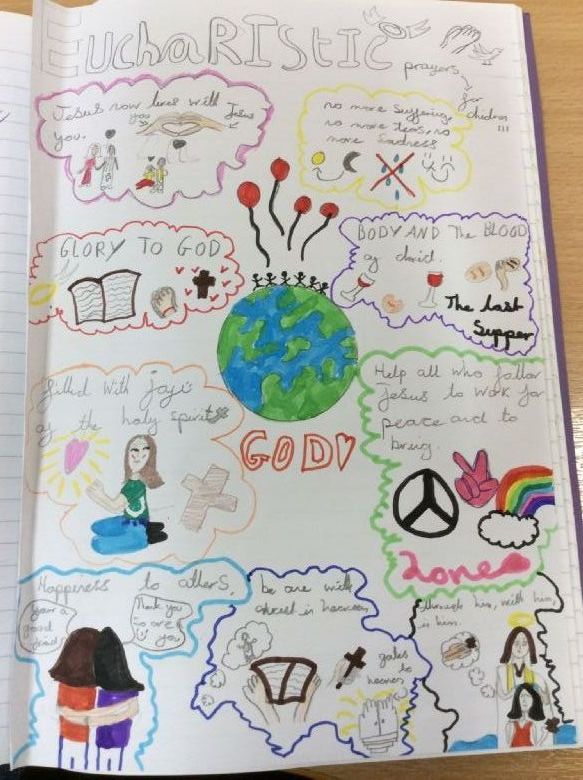 EUCHARISTIC
prayers
for
children
!!!
Jesus now lives with
you.
you
Jesus
no more suffering,
no more tears, no
more sadness
GLORY TO GOD
BODY AND The BLOOD
of
The Last
Supper
filled with
of the holy spirit
GOD
Help all who follow
Jesus to work for
peace and to
bring.
Love
Happeness to others,
Your a
good
friend
Thank you
so are
you
be one with
christ in heaven
gates
to
heaven
through him, with him,
in him.